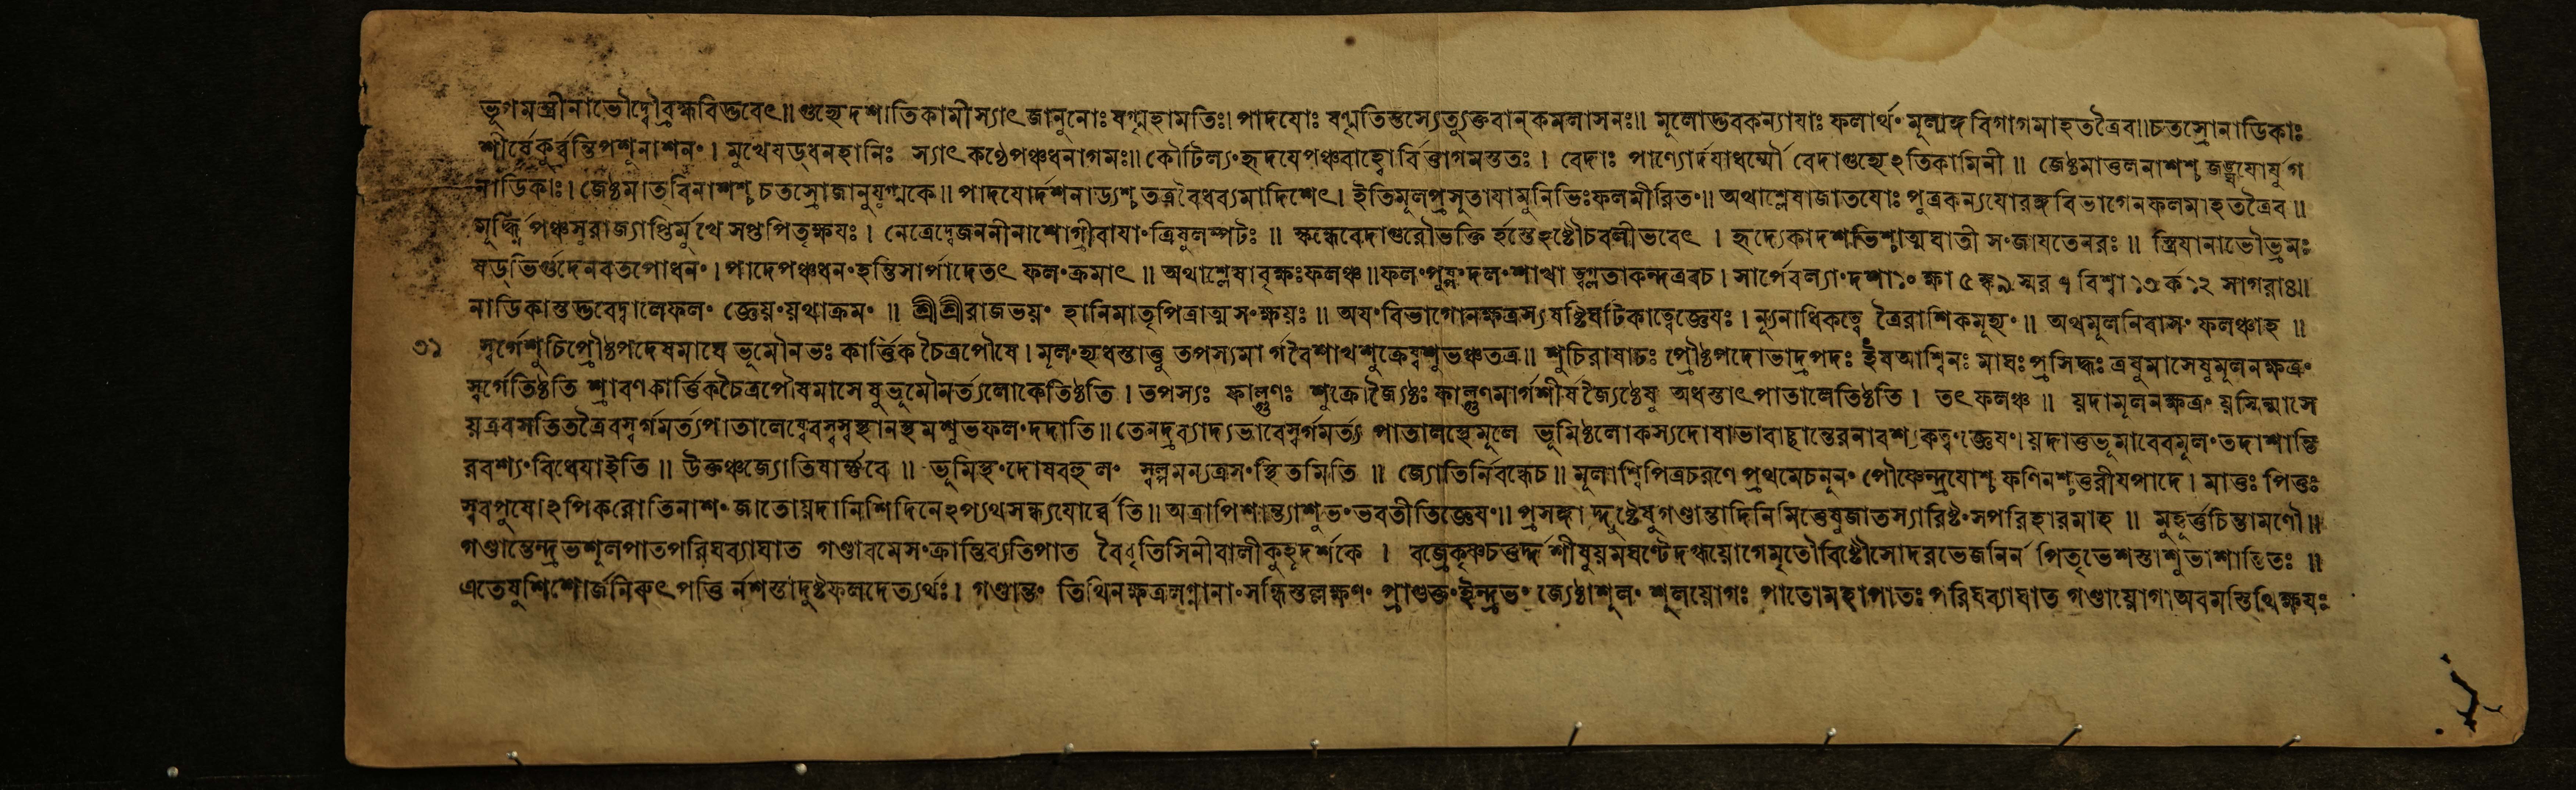 ভূগমস্ত্রীনাভৌদ্বৌব্রহ্মবিদ্ভবেৎ॥ গুহ্যেদশাতিকামীস্যাৎ জানুনোঃ ষণ্মহামতিঃ। পাদযোঃ ষণ্মতিস্তস্যেত্যুক্তবান্ কমলাসনঃ॥ মূলোদ্ভবকন্যাযাঃ ফলার্থং মূলাঙ্গবিগাগমাহতত্রৈব॥ চতস্রোনাডিকাঃ
শীর্ষেকুর্ব্বন্তিপশূনাশনং। মুখেষড্ধনহানিঃ স্যাৎ কণ্ঠেপঞ্চধনাগমঃ॥ কৌটিল্যংহৃদযেপঞ্চবাহ্বোর্বিত্তাগমস্ততঃ। বেদাঃ পাণ্যোর্দযাধর্ম্মৌ বেদাগুহ্যেঽতিকামিনী॥ জেষ্ঠমাতুলনাশশ্চ জঙ্ঘযোর্যুগ
নাডিকাঃ। জেষ্ঠমাতৃবিনাশশ্চ চতস্রোজানুযুগ্মকে॥ পাদযোর্দশনাড্যশ্চ তত্রবৈধব্যমাদিশেৎ। ইতিমূলপ্রসুতাযামুনিভিঃফলমীরিতং॥ অথাশ্লেষাজাতযোঃ পুত্রকন্যযোরঙ্গবিভাগেনফলমাহতত্রৈব॥
মূর্দ্ধ্নিপঞ্চসুরাজ্যাপ্তির্মুখে সপ্তপিতৃক্ষযঃ। নেত্রেদ্বেজননীনাশোগ্রীবাযাংত্রিষুলম্পটঃ॥ স্কন্ধেবেদাগুরৌভক্তি র্হস্তেহষ্টৌচবলীভবেৎ। হৃদ্যেকাদশভিশ্চাত্মঘাতী সংজাযতেনরঃ॥ স্ত্রিযানাভৌভ্রমঃ
ষড্ভির্গুদেনবতপোধনং। পাদেপঞ্চধনংহন্তিসার্পাদেতৎ ফলংক্রমাৎ॥ অথাশ্লেষাবৃক্ষঃফলঞ্চ॥ ফলংপুষ্পংদলংশাখা ত্বগ্লতাকন্দএবচ। সার্পেবল্যাংদশা১০ ক্ষা ৫ ঙ্ক৯ স্মর ৭ বিশ্বা ১৩ র্ক১২ সাগরাঃ৪॥
নাডিকাস্তদ্ভবেদ্বালেফলং জ্ঞেয়ংয়থাক্রমং॥ শ্রীশ্রীরাজভয়ং হানিমাতৃপিত্রাত্মসংক্ষয়ঃ॥ অযংবিভাগোনক্ষত্রস্যষষ্টিঘটিকাত্বেজ্ঞেযঃ। ন্যূনাধিকত্বে ত্রৈরাশিকমূহ্যং॥ অথমূলনিবাসং ফলঞ্চাহ॥
৩১ স্বর্গেশুচিপ্রৌষ্ঠপদেষমাঘে ভূমৌনভঃ কার্ত্তিক চৈত্রপৌষে। মূলংহ্যধস্তাত্তু তপস্যমা র্গবৈশাখশুক্রেষ্বশুভঞ্চতত্র॥ শুচিরাষাঢঃ প্রৌষ্ঠপদোভাদ্রপদঃ ইষআশ্বিনঃ মাঘঃ প্রসিদ্ধঃ এষুমাসেষুমূলনক্ষত্রং
স্বর্গেতিষ্ঠতি শ্রাবণকার্ত্তিকচৈত্রপৌষমাসে ষুভূমৌমর্ত্যলোকেতিষ্ঠতি। তপস্যঃ ফাল্গুণঃ শুক্রোজ্যৈষ্ঠঃ ফাল্গুণমার্গশীর্ষজ্যৈষ্ঠেষু অধস্তাৎপাতালেতিষ্ঠতি। তৎ ফলঞ্চ॥ য়দামূলনক্ষত্রং য়স্মিন্মাসে
য়ত্রবসতিতত্রৈবস্বর্গমর্ত্যপাতালেষ্বেবস্বস্বস্থানস্থমশুভফলংদদাতি॥ তেনদ্রব্যাদ্যভাবেস্বর্গমর্ত্য পাতালস্থেমূলে ভূমিষ্ঠলোকস্যদোষাভাবাচ্ছান্তেরনাবশ্যকত্বংজ্ঞেযং। য়দাতুভূমাবেবমূলংতদাশান্তি
রবশ্যংবিধেযাইতি॥ উক্তঞ্চজ্যোতিষার্ণ্ণবে॥ ভূমিস্থংদোষবহুলং স্বল্পমন্যত্রসংস্থিতমিতি॥ জ্যোতির্নিবন্ধেচ॥ মূলাশ্বিপিত্রচরণে প্রথমেচনূনং পৌষ্ণেন্দ্রযোশ্চ ফণিনশ্চতুরীযপাদে। মাতুঃ পিতুঃ
স্ববপুষোঽপিকরোতিনাশং জাতোয়দানিশিদিনেঽপ্যথসন্ধ্যযোর্ব্বেতি॥ অত্রাপিশান্ত্যাশুভংভবতীতিজ্ঞেযং॥ প্রসঙ্গাদ্দুষ্টেষুগণ্ডান্তাদিনিমিত্তেষুজাতস্যারিষ্টংসপরিহারমাহ॥ মুহূর্ত্তচিন্তামণৌ॥
গণ্ডান্তেন্দ্রভশূলপাতপরিঘব্যাঘাত গণ্ডাবমেসংক্রান্তিব্যতিপাত বৈধৃতিসিনীবালীকুহূদর্শকে। বজ্রেকৃষ্ণচতুর্দ্দশীষুয়মঘণ্টেদগ্ধয়োগেমৃতৌবিষ্টৌসোদরভেজনির্ন পিতৃভেশস্তাশুভাশান্তিতঃ॥
এতেষুশিশোর্জনিরুৎপত্তি র্নশস্তাদুষ্টফলদেত্যর্থঃ। গণ্ডান্তং তিথিনক্ষত্রলগ্নানাংসন্ধিস্তল্লক্ষণং প্রাগুক্তংইন্দ্রভং জ্যেষ্ঠাশূলং শূলয়োগঃ পাতোমহাপাতঃ পরিঘব্যাঘাত গণ্ডায়োগাঅবমস্তিথিক্ষযঃ